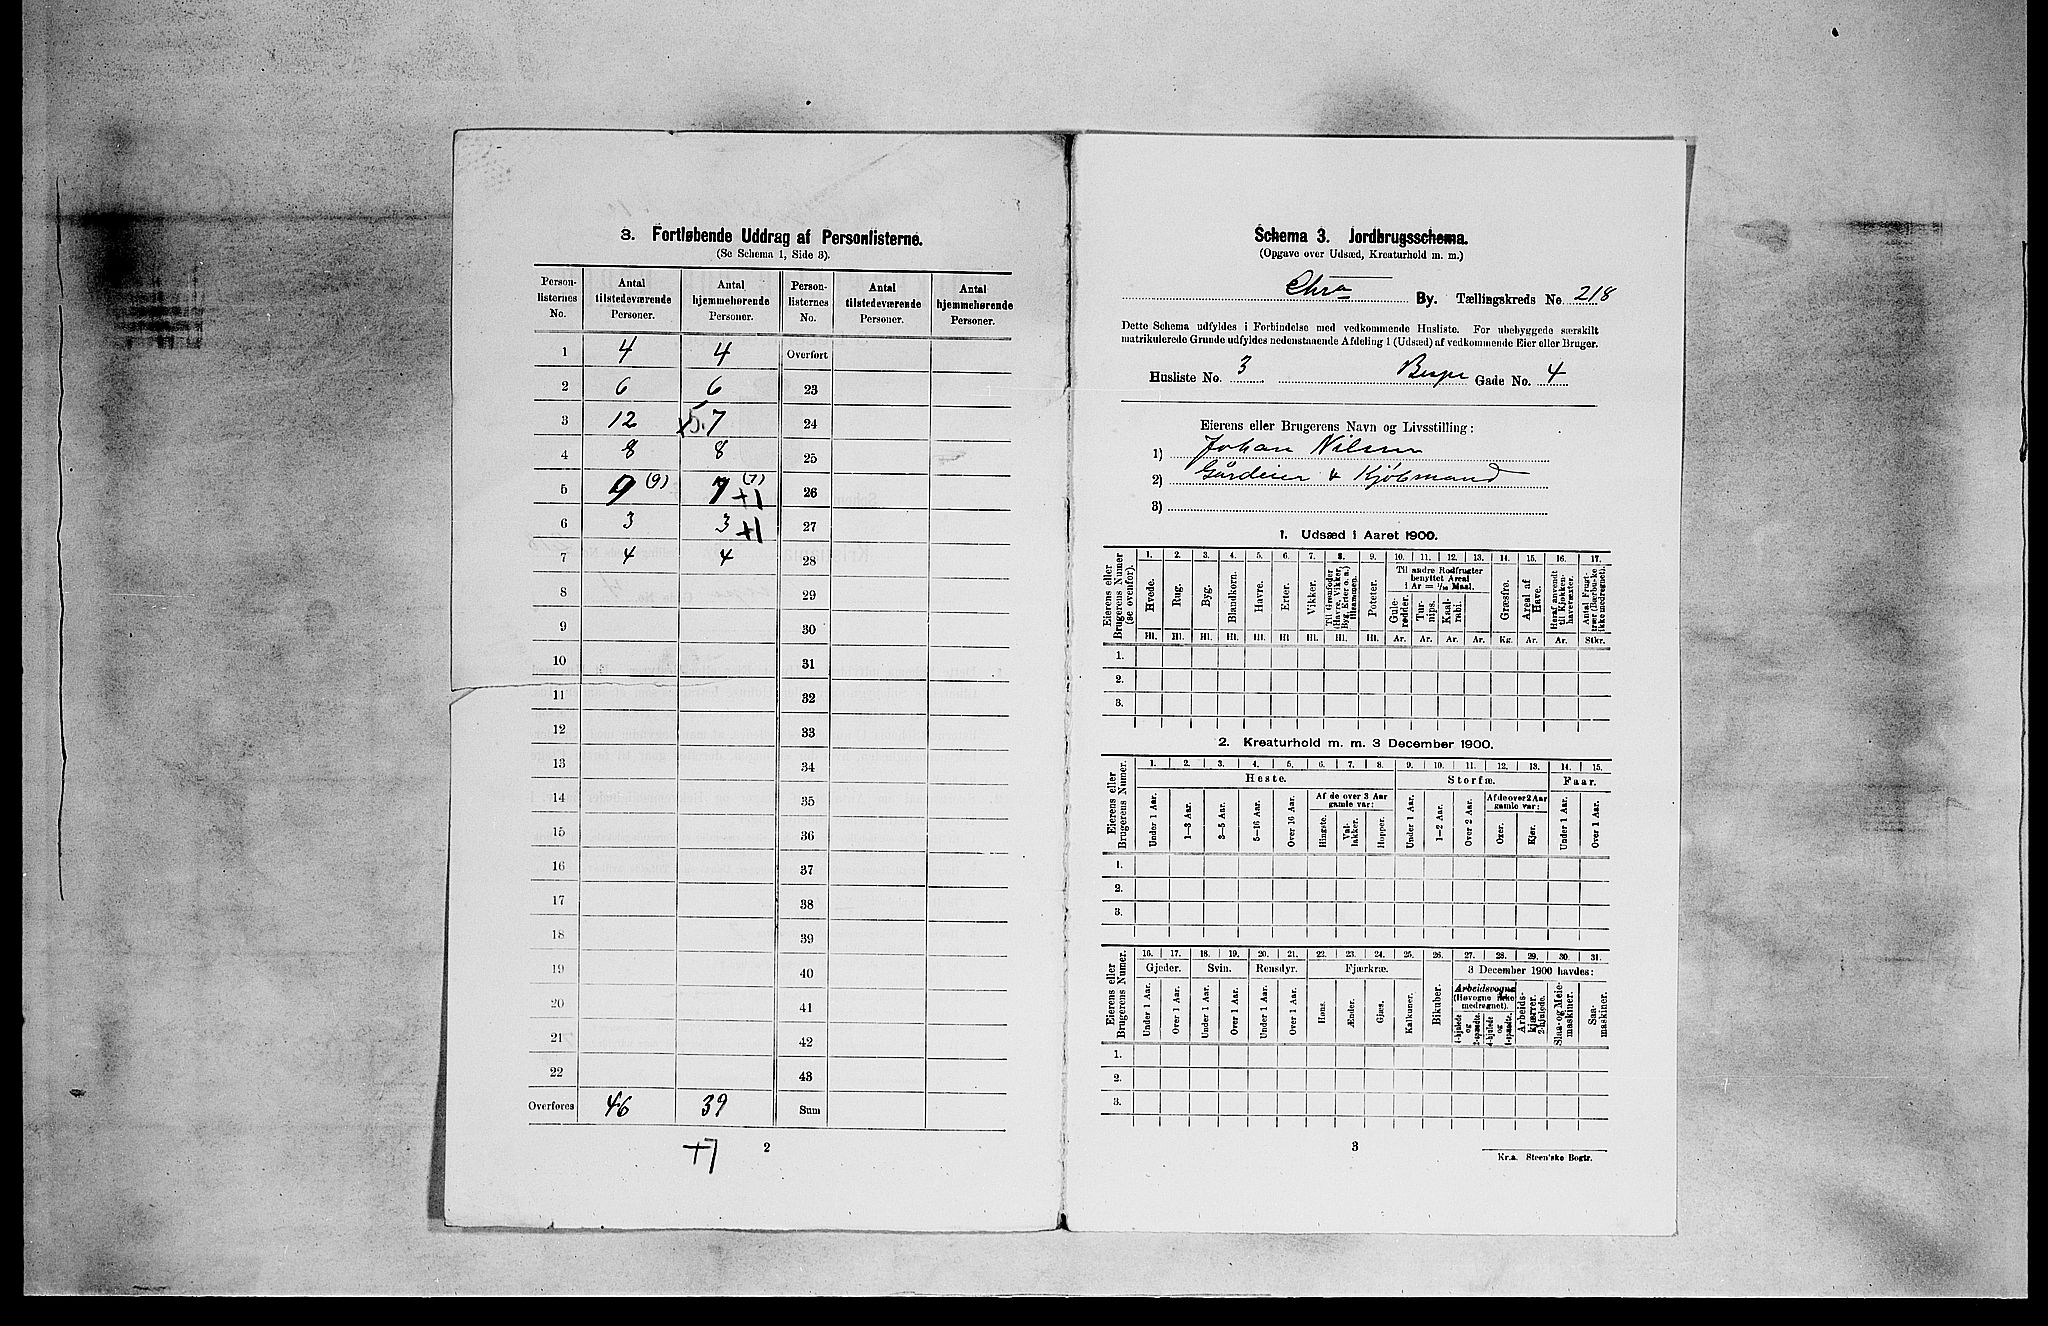 3. Fortløbende Uddrag af Personlisterne.
(Se Schema 1, Side 3).
Person-listernes No. | Antal tilstedeværende Personer. | Antal hjemmehørende Personer. | Person-listernes No. | Antal tilstedeværende Personer. | Antal hjemmehørende Personer.
1 4 4 Overført
2 6 6 23
3 12 x5.7 24
4 8 8 25
5 9 (9) 7 (7) +1 26
6 3 3 +1 27
7 4 4 28
8 29
9 30
10 31
11 32
12 33
13 34
14 35
15 36
16 37
17 38
18 39
19 40
20 41
21 42
22 43
Overføres 46 39 Sum
+7
2
Schema 3. Jordbrugsschema.
(Opgave over Udsæd, Kreaturhold m. m.)
Chra By. Tællingskreds No. 218
Dette Schema udfyldes i Forbindelse med vedkommende Husliste. For ubebyggede særskilt
matrikulerede Grunde udfyldes nedenstaaende Afdeling 1 (Udsæd) af vedkommende Eier eller Bruger.
Husliste No. 3. Gade No. 4
Eierens eller Brugerens Navn og Livsstilling:
1) Johan Nilsen
2) Gårdeier & Kjøbmand
3)
1. Udsæd i Aaret 1900.
Eierens eller Brugerens Numer (se ovenfor).
1. 2. 3. 4. 5. 6. 7. 8. 9. 10. 11. 12. 13. 14. 15. 16. 17.
Hvede. Rug. Byg. Blandkorn. Havre. Erter. Vikker. Til Grønfoder (Havre, Vikker, Byg, Erter o. a.) tilsammen. Poteter.
Til andre Rodfrugter benyttet Areal i Ar = 1/10 Maal.
Gule-rødder. Tur-nips. Kaal-rabi.
Græsfrø. Areal af Have. Heraf anvendt til Kjøkken-havevæxter. Antal Frugt-trær (Bærbuske ikke medregnet).
Hl. Hl. Hl. Hl. Hl. Hl. Hl. Hl. Hl. Ar. Ar. Ar. Ar. Kg. Ar. Ar. Stkr.
1.
2.
3.
2. Kreaturhold m. m. 3 December 1900.
Eierens eller Brugerens Numer.
1. 2. 3. 4. 5. 6. 7. 8. 9. 10. 11. 12. 13. 14. 15.
Heste. Storfæ. Faar.
Under 1 Aar. 1—3 Aar. 3—5 Aar. 5—16 Aar. Over 16 Aar.
Af de over 3 Aar gamle var:
Hingste. Val-lakker. Hopper.
Under 1 Aar. 1—2 Aar. Over 2 Aar.
Af de over 2 Aar gamle var:
Oxer. Kjør.
Under 1 Aar. Over 1 Aar.
1.
2.
3.
Eierens eller Brugerens Numer.
16. 17. 18. 19. 20. 21. 22. 23. 24. 25. 26. 27. 28. 29. 30. 31.
Gjeder. Svin. Rensdyr. Fjærkræ. 3 December 1900 havdes:
Under 1 Aar. Over 1 Aar. Under 1 Aar. Over 1 Aar. Under 1 Aar. Over 1 Aar. Høns. Ænder. Gjæs. Kalkuner. Bikuber.
Arbeidsvogne (Høvogne ikke medregnet).
4-hjulede og 2-spændte. 4-hjulede og 1-spændte.
Arbeids-kjærrer, 2-hjulede. Slaa- og Meie-maskiner. Saa-maskiner.
1.
2.
3.
3
Kr.a. Steen'ske Bogtr.